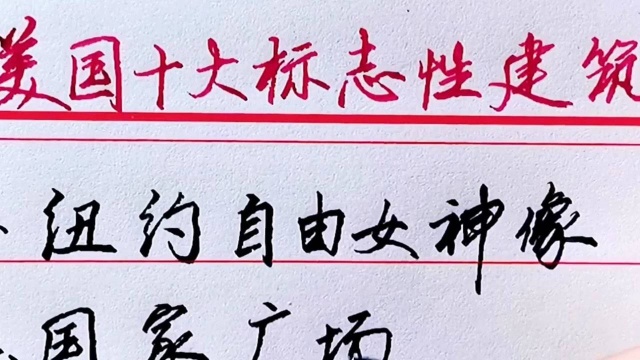 美国十大标志性建筑
纽约自由女神像
国家广场